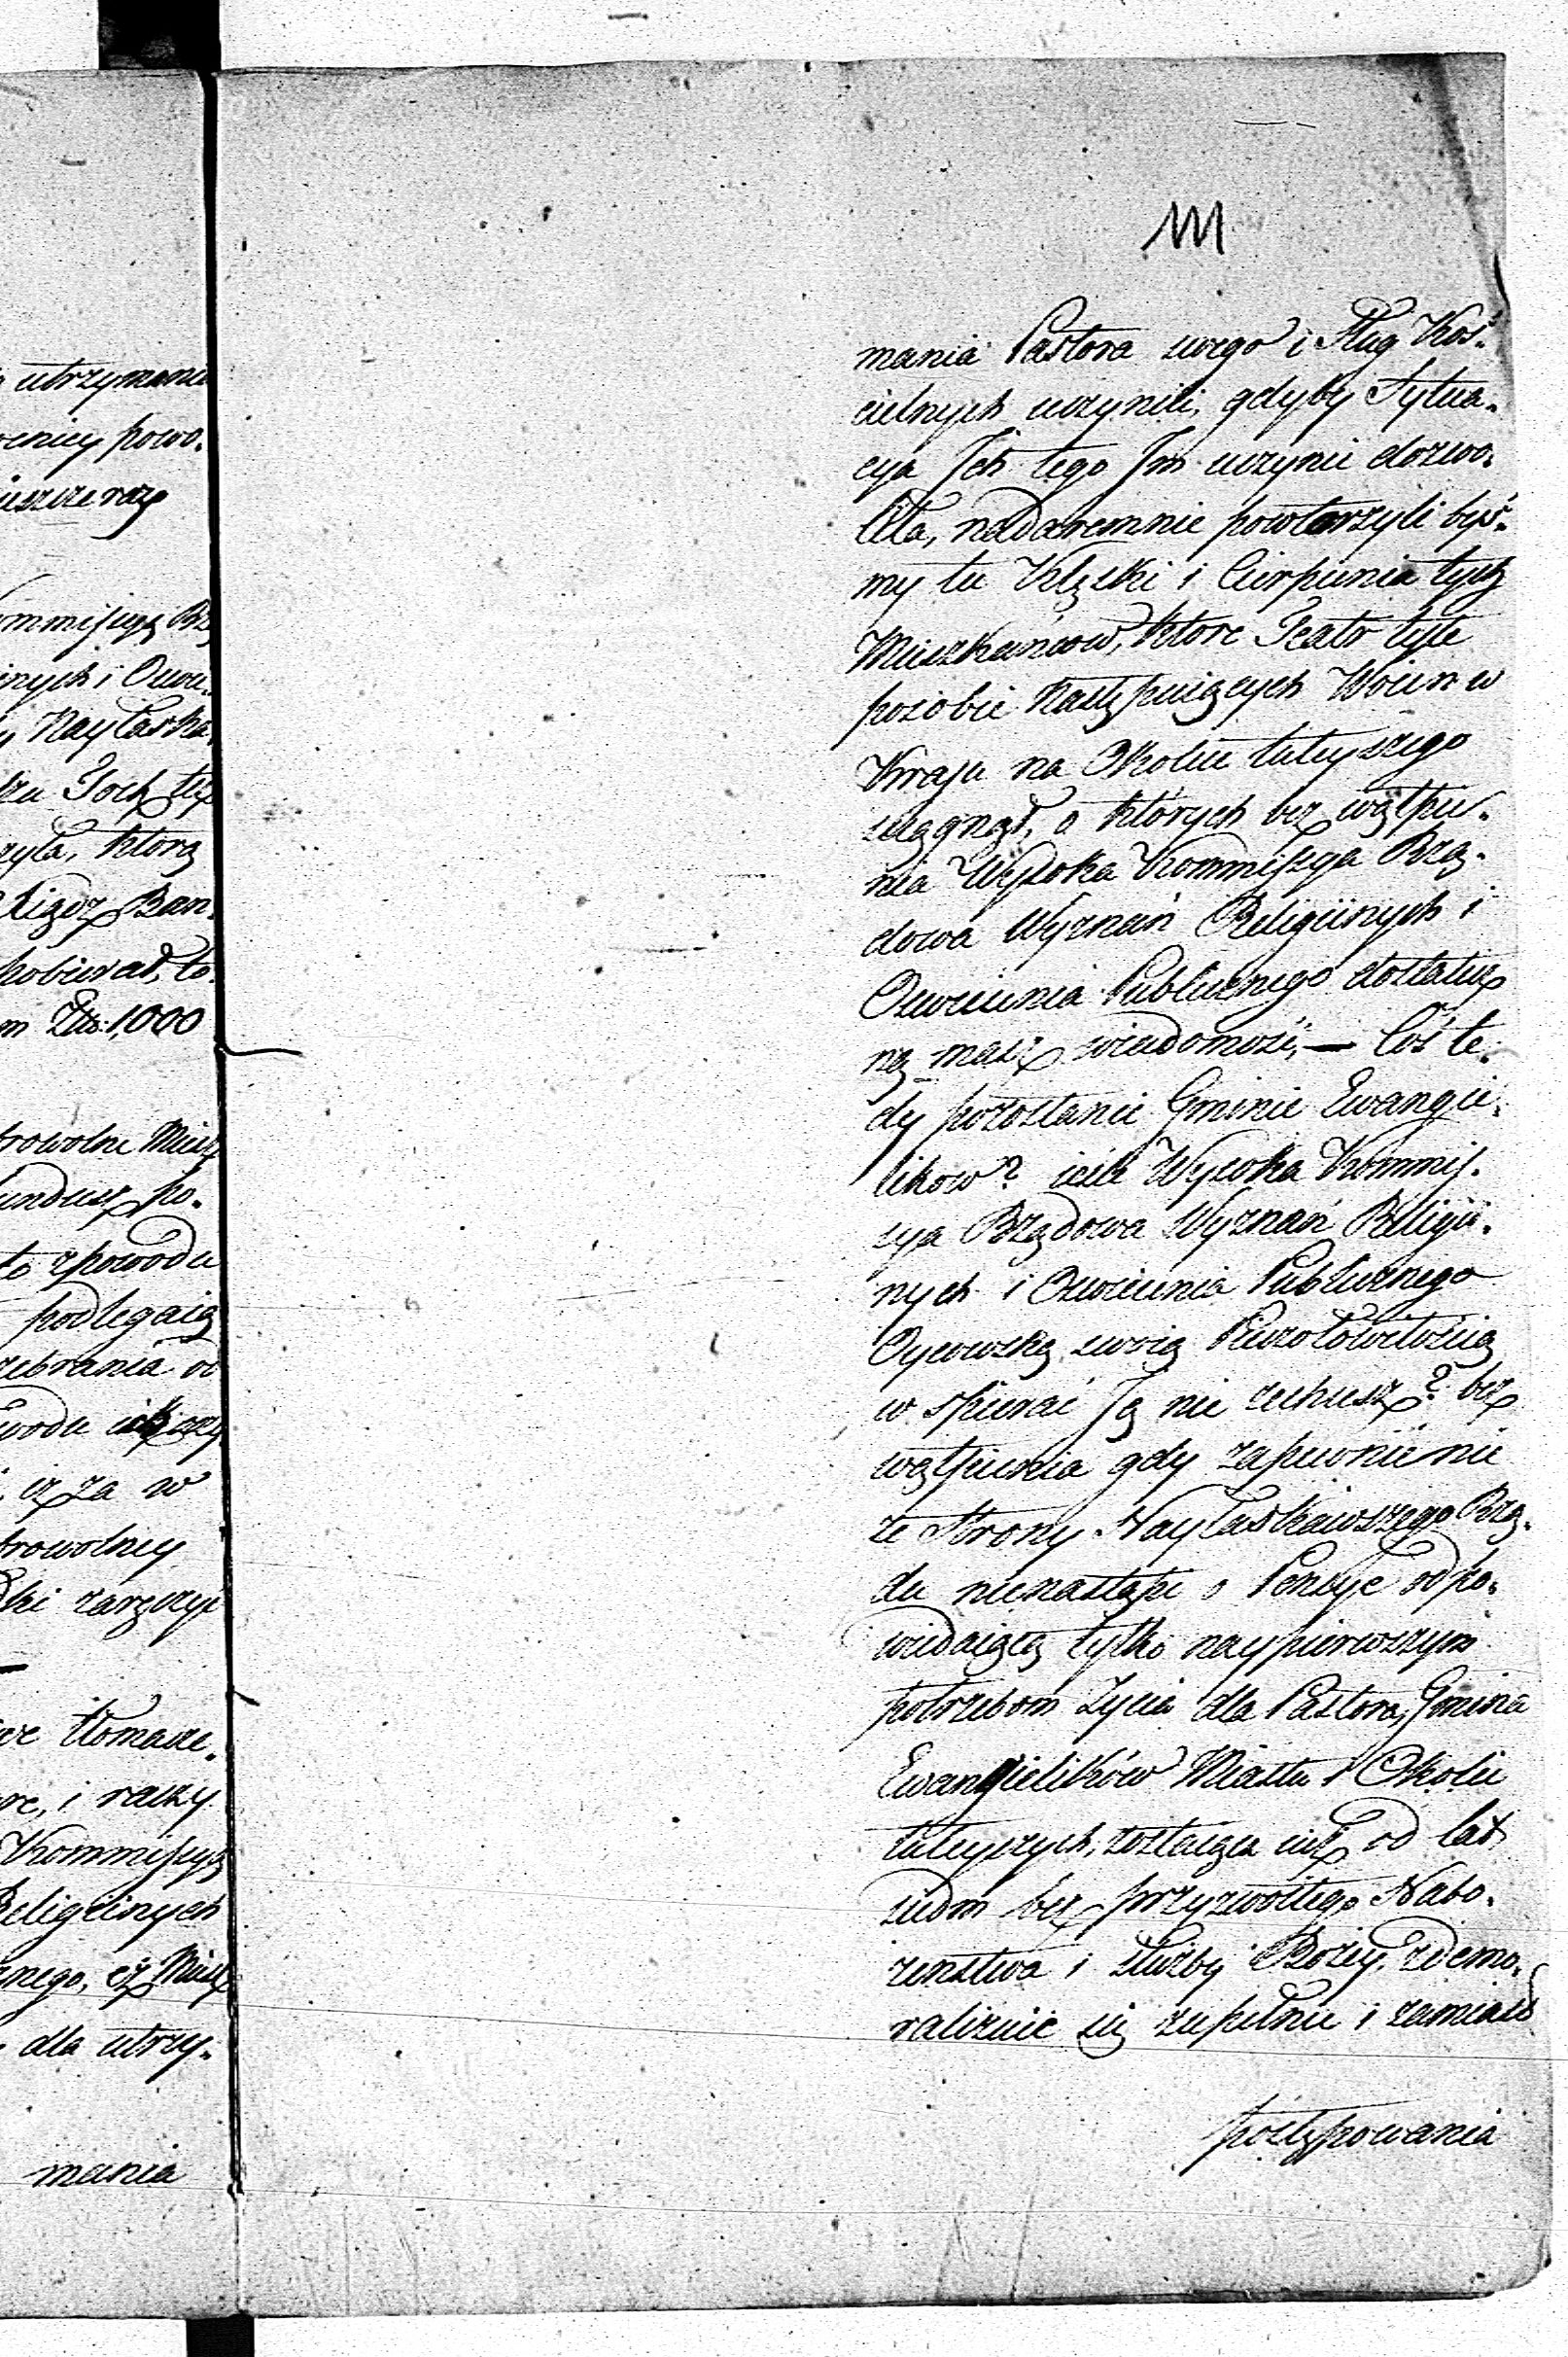 utrzymania
powo.
ieszcze razp
Kommissyą Rzą
inych i Oświe.
Nayłaska.
Ktorą
pobierał, to.
m Złt: 1,000
browolne Miesz
Fundusz po.
to zpowodu
podlegaią
zebrania od
iż za w
browolney
zaręczyć
tłomacze.
re, i raczy
Kommissyą
Religiinych
znego, iż Miesz
dla utrzy.
mania
111
mania Pastora swego i Sług Koś.
cielnych uczynili, gdyby Sytua.
cya Jch tego Jm uczynić dozwo.
liła, nadaremnie powtorzyli byś.
my tu Klęski i Cierpienia tych
Mieszkańcow, Ktore Teatr tyle
posobie Następuiących Woien w
Kraju na Okolice tuteyszego
sciągnął, o których bez wątpie.
nia Wysoka Kommissya Rzą.
dowa Wyznań Religiinych i
Oswiecenia Publicznego dostatecz
ną masz wiadomość, — Cóś te.
dy pozostanie Gminie Ewangie.
likow? ieśli Wysoka Kommis.
sya Rządowa Wyznań Religii.
nych i Oswiecenia Publicznego
Oycowską swoią Pieczołowitością
w spierać Ją nie zechcesz? bez
wątpienia gdy zapewnienie
ze Strony Nayłaskawszego Rzą.
du nienastąpi o Pensye odpo.
wiedaiącą tylko naypierwszym
potrzebom Życia dla Pastora, Gmina
Ewangielików Miasta i Okolic
tuteyszych, zostaiąca iuż od lat
siedm bez przyzwoitego Nabo.
żenstwa i służby Bożey, zdemo.
ralizuie się zupełnie i zamiast
postępowania